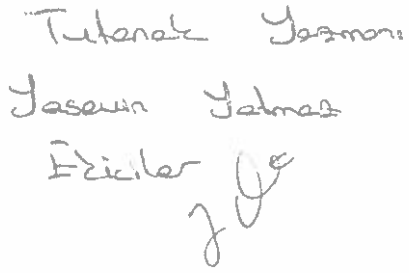 Tutanak Yazmanı
Yasemin Yılmaz
Ekiciler